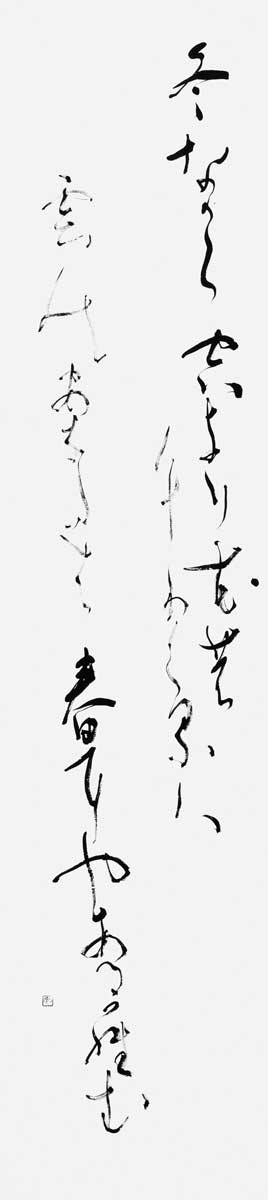 冬なから空より花の
ちりくるハ
雲のあなたは春にやあるらむ